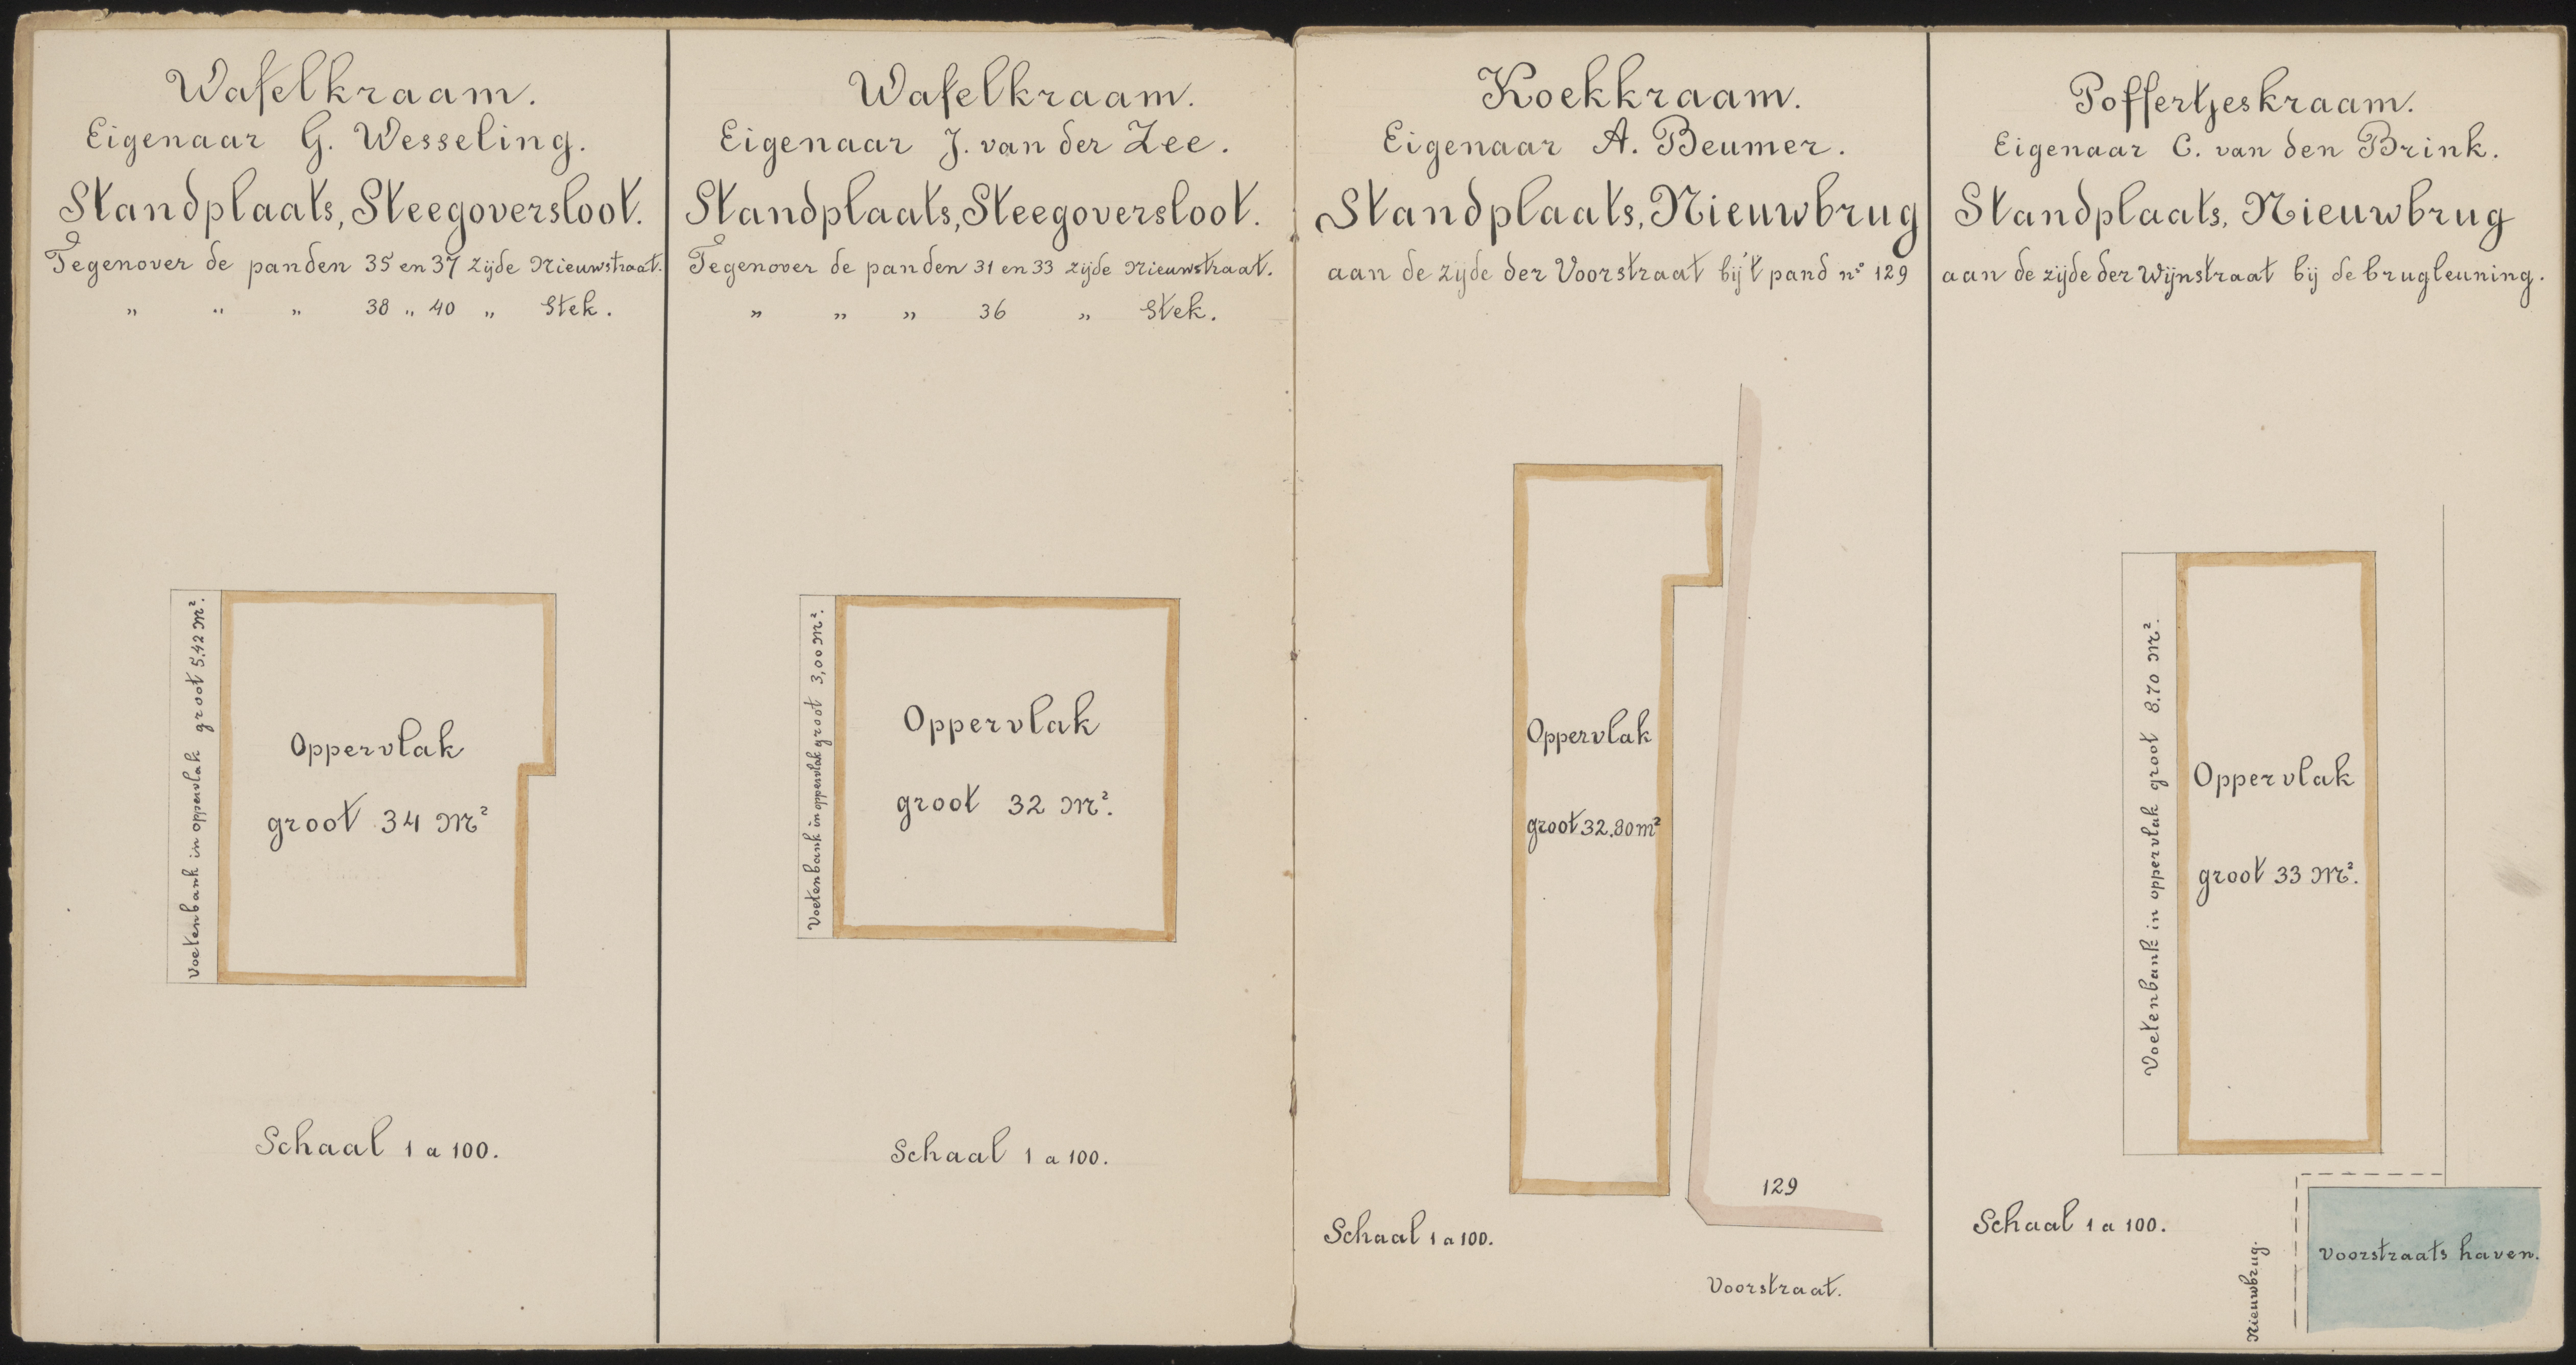 Wafelkraam.
Eigenaar G. Wesseling.
Standplaats, Steegoversloot.
Tegenover de panden 35 en 37 zijde Nieuwstraat.
„ „ „ 38 „ 40 „ Stek.
Voetenbank in oppervlak groot 5.42 M².
Oppervlak
groot 34 M²
Schaal 1 a 100.
Wafelkraam.
Eigenaar J. van der Zee.
Standplaats, Steegoversloot.
Tegenover de panden 31 en 33 zijde Nieuwstraat.
„ „ „ 36 „ Stek.
Voetenbank in oppervlak groot 3,00 M².
Oppervlak
groot 32 M².
Schaal 1 a 100.
Koekkraam.
Eigenaar A. Beumer.
Standplaats, Nieuwbrug
aan de zijde der Voorstraat bij 't pand nº 129
Oppervlak
groot 32.80 m²
129
Schaal 1 a 100.
Voorstraat.
Poffertjeskraam.
Eigenaar C. van den Brink.
Standplaats, Nieuwbrug
aan de zijde der Wijnstraat bij de brugleuning.
Voetenbank in oppervlak groot 8.70 M².
Oppervlak
groot 33 M².
Schaal 1 a 100.
Nieuwbrug.
Voorstraats haven.